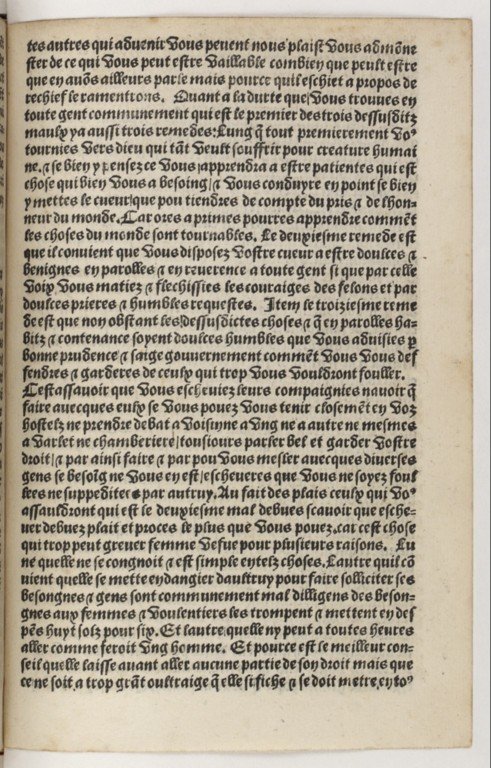 tes autres qui aduenir vous peuent nous plaist vous admōne
ster de ce qui vous peut estre vaillable combien que peult estre
que en auōs ailleurs parle mais pource quil eschiet a propos de
rechief le ramentrons. Quant a la durte que vous trouues en
toute gent communement qui est le premier des trois dessusditz
maulx ya aussi trois remedes: Lung q̄ tout premierement voꝰ
tournies vers dieu qui tāt veult souffrir pour creature humai
ne. ⁊ se bien y pensez ce vous apprendra a estre patientes qui est
chose qui bien vous a besoing/ ⁊ vous conduyre en point se bien
y mettes le cueur/que pou tiendres de compte du pris ⁊ de lhon-
neur du monde. Car ores a primes pourres apprendre commēt
les choses du monde sont tournables. Le deuxiesme remede est
que il conuient que vous disposez vostre cueur a estre doulces ⁊
benignes en parolles ⁊ en reuerence a toute gent si que par celle
voix vous matiez ⁊ flechissies les couraiges des felons et par
doulces prieres ⁊ humbles requestes. Item le troiziesme reme
de est que non obstant les dessusdictes choses ⁊ q̄ en parolles ha-
bitz ⁊ contenance soyent doulces humbles que vous aduises p
bonne prudence ⁊ saige gouuernement commēt vous vous def
fendres ⁊ garderes de ceulx qui trop vous vouldront fouller.
Cestassauoir que vous escheuiez leurs compaignies nauoir q̄
faire auecques eulx se vous pouez vous tenir closemēt en voz
hostelz ne prendre debat a voisine a vng ne a autre ne mesmes
a varlet ne chamberiere/tousiours parler bel et garder vostre
droit/ ⁊ par ainsi faire ⁊ par pou vous mesler auecques diuerses
gens se besoīg ne vous en est/escheueres que vous ne soyez foul
lees ne suppeditees par autruy. Au fait des plais ceulx qui voꝰ
assauldront qui est le deuxiesme mal debues scauoir que esche-
uer debuez plait et proces le plus que vous pouez.car cest chose
qui trop peut greuer femme vefue pour plusieurs raisons. Lu
ne quelle ne se congnoit ⁊ est simple en telz choses. Lautre quil cō
uient quelle se mette en dangier daultruy pour faire solliciter ses
besongnes ⁊ gens sont communement mal dilligens des beson-
gnes aux femmes ⁊ voulentiers les trompent ⁊ mettent en des
pēs huyt solz pour six. Et lautre/quelle ny peut a toutes heures
aller comme feroit vng homme. Et pource est le meilleur con-
seil quelle laisse auant aller aucune partie de son droit mais que
ce ne soit a trop grāt oultraige q̄ elle si fiche ⁊ se doit metre en toꝰ